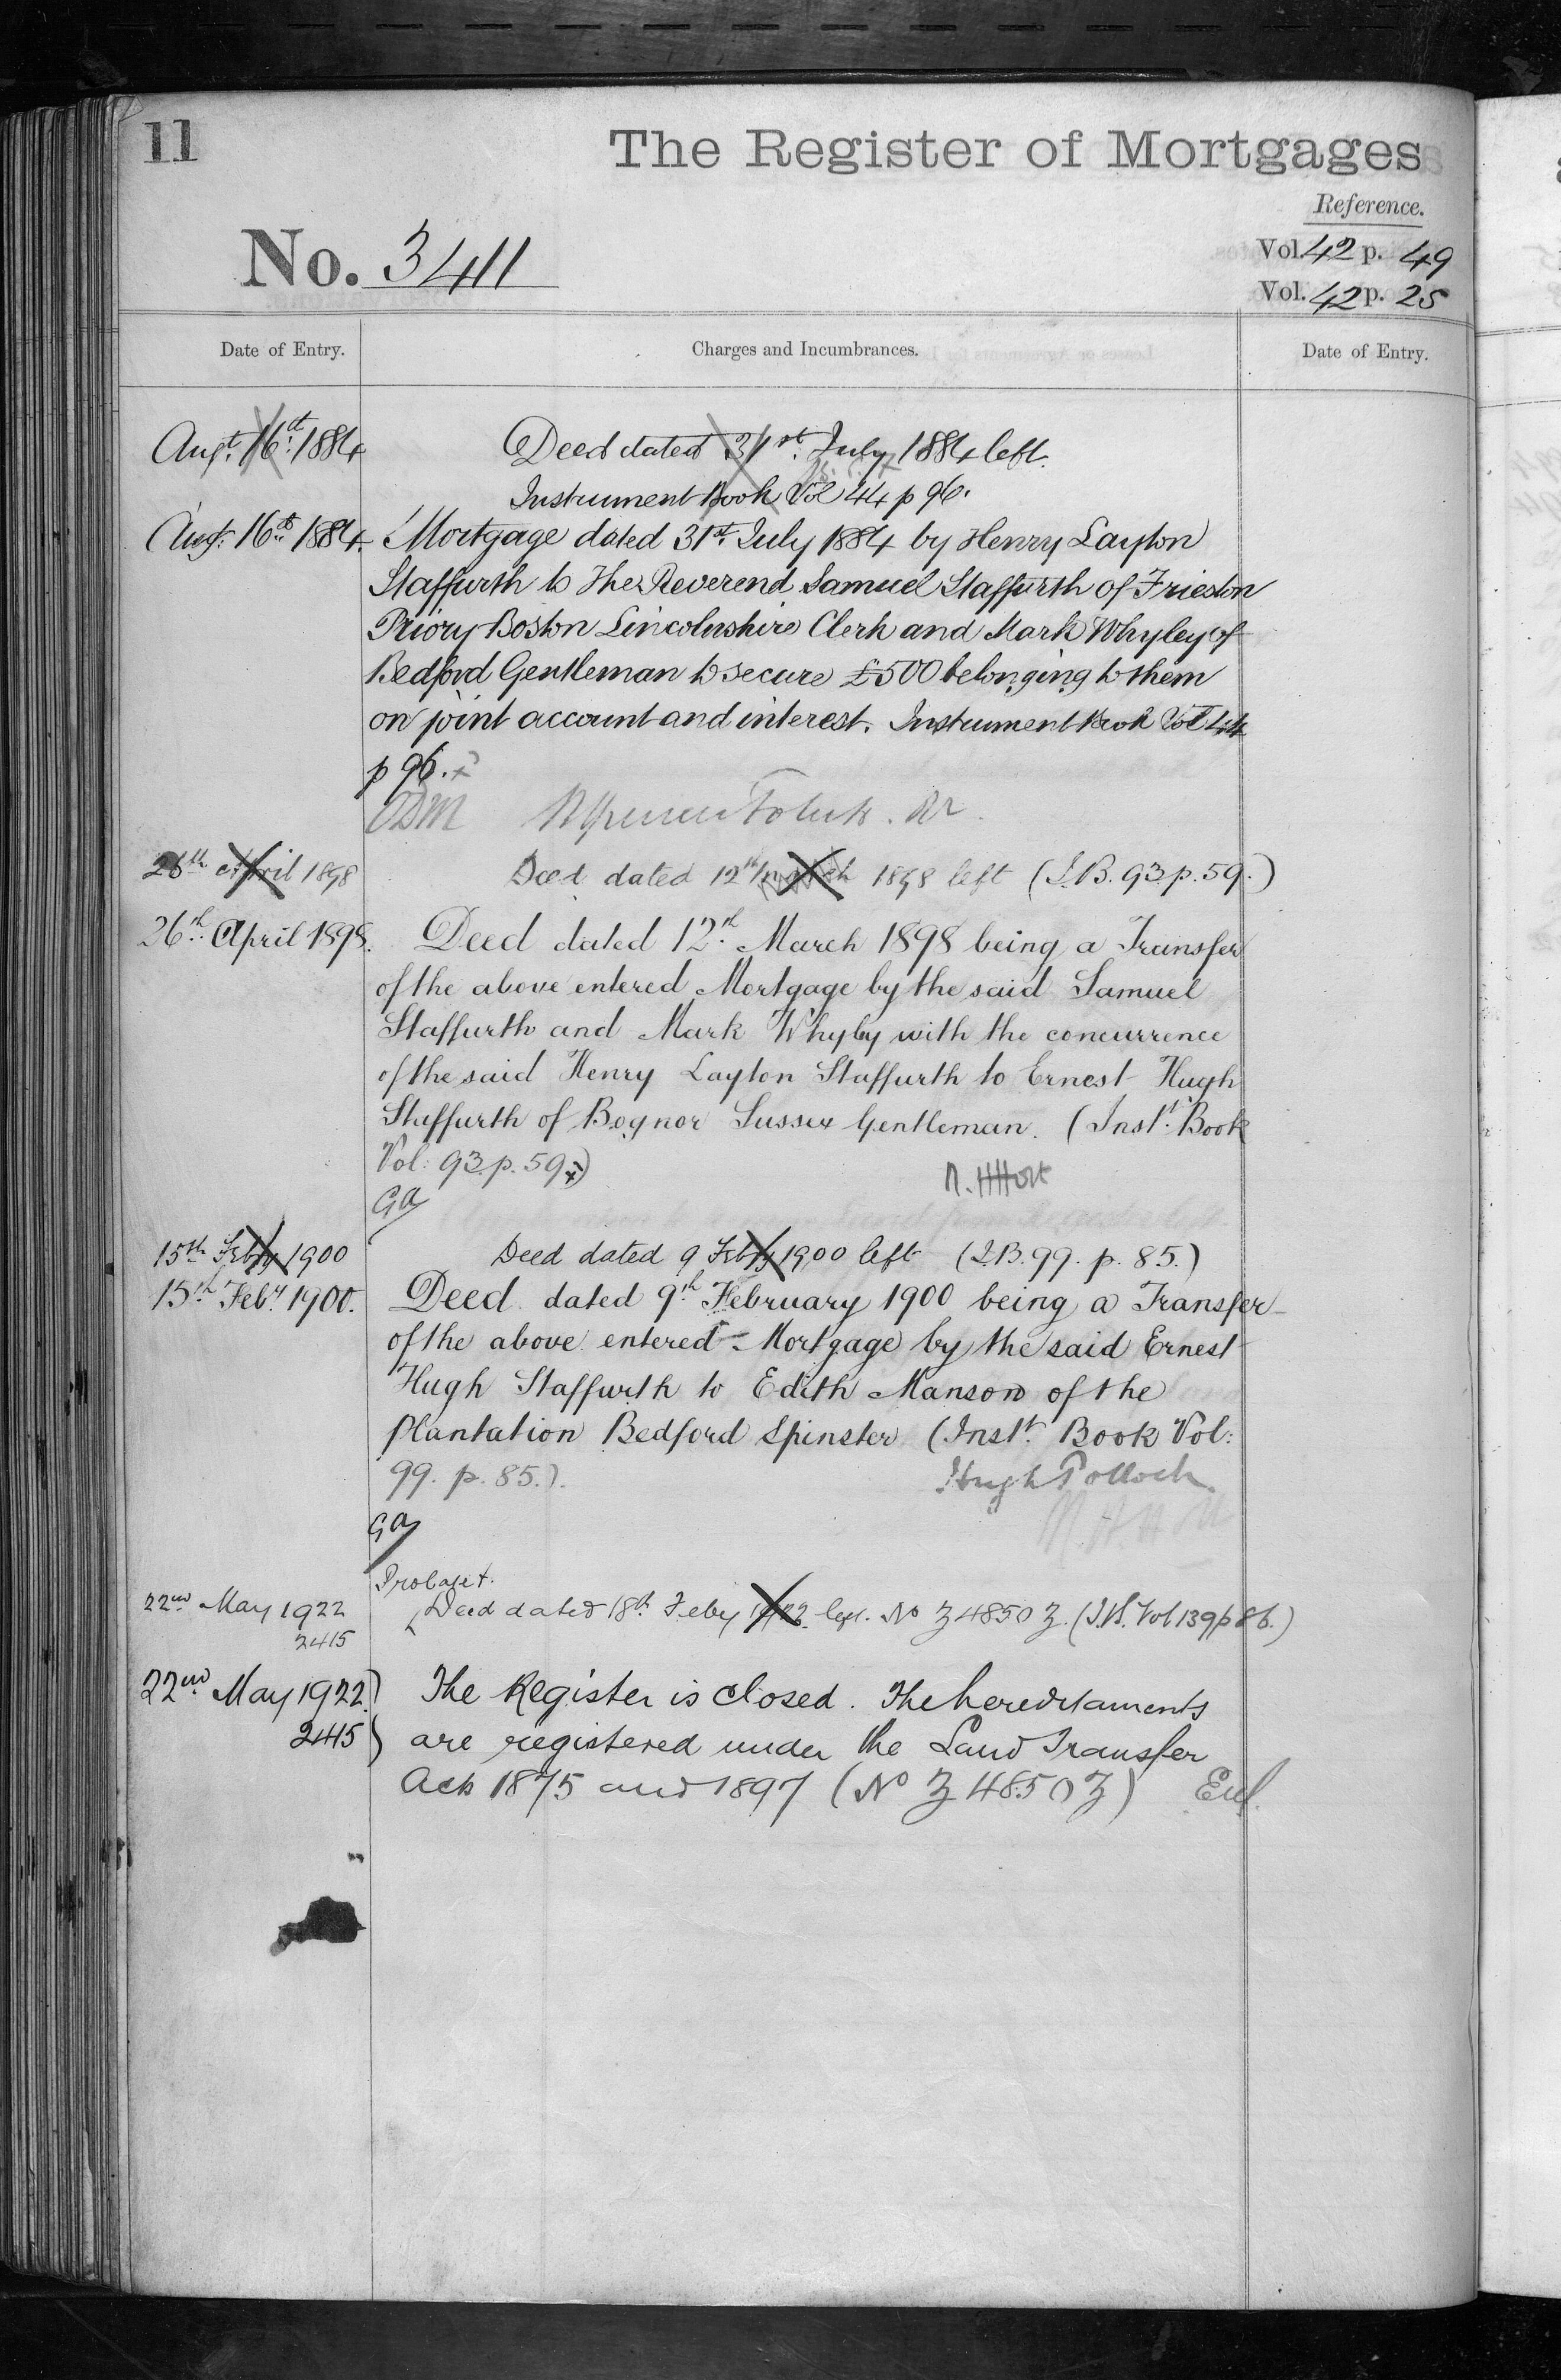 11
The Register of Mortgages
Reference.
No. 3411
Vol. 42 p. 49
Vol. 42 p. 25
Date of Entry.
Charges and Incumbrances.
Date of Entry.
Augt. 16th. 1884
Deed dated 31st. July 1884 left.
Instrument Book Vol 44 p 96.
Augt. 16th 1884.
Mortgage dated 31st. July 1884 by Henry Layton
Staffurth to The Reverend Samuel Staffurth of Frieston
Priory Boston Lincolnshire Clerk and Mark Whyley of
Bedford Gentleman to secure £500 belonging to them
on joint account and interest. Instrument Book Vol 44
p 96.
26th April 1898
Deed dated 12th March 1898 left (I.B. 93 p. 59.)
26th. April 1898.
Deed dated 12th. March 1898 being a Transfer
of the above entered Mortgage by the said Samuel
Staffurth and Mark Whyley with the concurrence
of the said Henry Layton Staffurth to Ernest Hugh
Staffurth of Bognor Sussex Gentleman. (Inst. Book
Vol: 93. p. 59.)
Ga
15th Feby 1900
Deed dated 9 Feby 1900 left (I.B. 99. p. 85.)
15th. Feby 1900.
Deed dated 9th. February 1900 being a Transfer
of the above entered Mortgage by the said Ernest
Hugh Staffurth to Edith Manson of the
Plantation Bedford Spinster (Inst. Book Vol:
99. p. 85.).
Hugh Pollock
Ga
Probate &
22nd May 1922
Deed dated 18th Feby 1922 left. No Z 4850 Z. (I.B. Vol 139 p 86.)
2415
22nd May 1922)
The Register is closed. The hereditaments
2415)
are registered under the Land Transfer
Acts 1875 and 1897 (No Z 4850 Z)